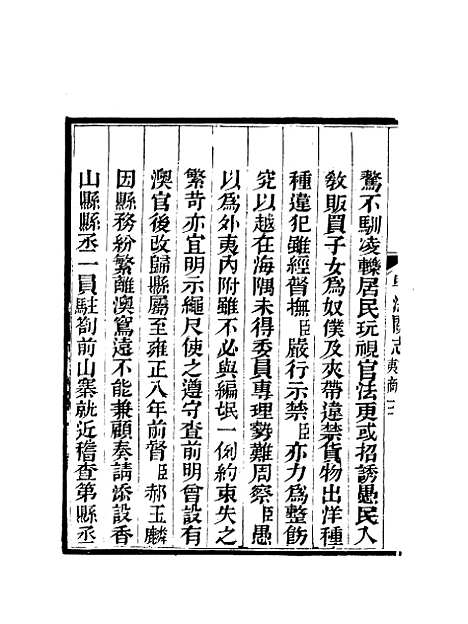 驁不馴凌轢居民玩視官法更或招誘愚民入
教販買子女爲奴僕及夾帶違禁貨物出洋種
種違犯雖經督撫臣嚴行示禁臣亦力爲整飭
究以越在海隅未得委員專理勢難周察臣愚
以爲外夷內附雖不必與編氓一例約束失之
繁苛亦宜明示繩尺使之遵守查前明曾設有
澳官後改歸縣屬至雍正八年前督臣郝玉麟
因縣務紛繁離澳窵遠不能兼顧奏請添設香
山縣縣丞一員駐劄前山寨就近稽查第縣丞